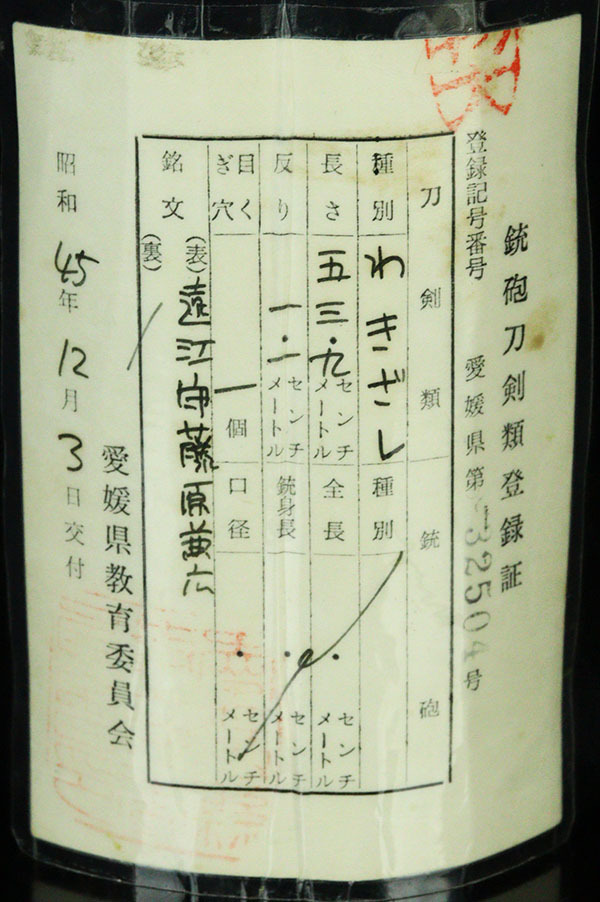 銃砲刀剣類登録証
登録記号番号 愛媛県第 32504号
刀剣類 銃砲
種別 わきざし 種別
長さ 五三・九センチメートル 全長 ・ センチメートル
反り 一・一センチメートル 銃身長 ・ センチメートル
目くぎ穴 一個 口径 ・ センチメートル
銘文 (表) 遠江守藤原兼広
(裏)
昭和45年12月3日交付
愛媛県教育委員会